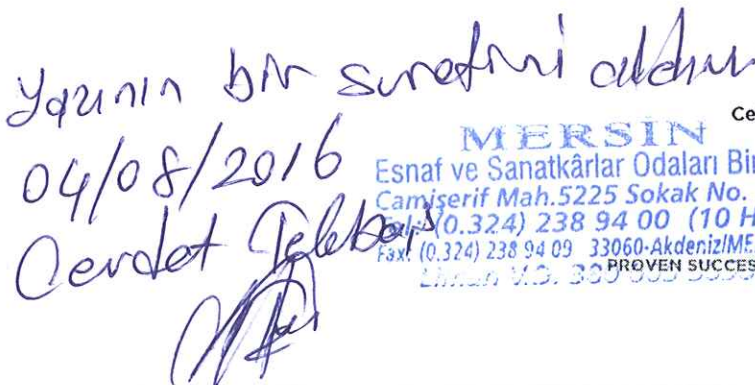 Yazının bir suretini aldım
04/08/2016
Cevdet
Ce
MERSİN
Esnaf ve Sanatkârlar Odaları Bir
Camişerif Mah.5225 Sokak No.
Tel: (0.324) 238 94 00 (10 H
Fax: (0.324) 238 94 09 33060-Akdeniz/ME
PROVEN SUCCES